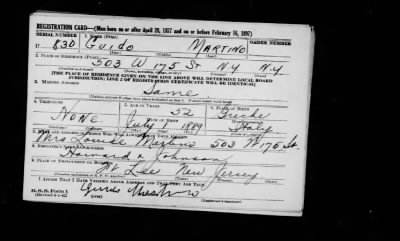 REGISTRATION CARD—(Men born on or after April 28, 1877 and on or before February 16, 1897)
SERIAL NUMBER 1. NAME (Print) ORDER NUMBER
U 830 Guido Martino
2. PLACE OF RESIDENCE (Print)
503 W 175 St N.Y. N.Y.
[THE PLACE OF RESIDENCE GIVEN ON THE LINE ABOVE WILL DETERMINE LOCAL BOARD
JURISDICTION; LINE 2 OF REGISTRATION CERTIFICATE WILL BE IDENTICAL]
3. MAILING ADDRESS
Same
4. TELEPHONE 5. AGE IN YEARS 6. PLACE OF BIRTH
52
None DATE OF BIRTH
July 1889 Italy
Mrs Louise Martino 503 W 175 St.
8. EMPLOYER'S NAME AND ADDRESS
Howard Johnson
9. PLACE OF EMPLOYMENT OR BUSINESS
Ft Lee New Jersey
I AFFIRM THAT I HAVE VERIFIED ABOVE ANSWERS AND THAT THEY ARE TRUE.
D. S. S. Form 1